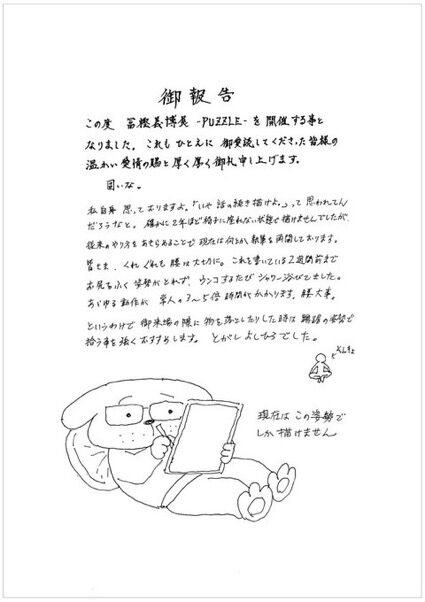 御報告
この度 冨樫義博展 -PUZZLE- を開催する事と
なりました。これも ひとえに 御愛読してくださった皆様の
温かい愛情の賜と厚く厚く御礼申し上げます。
固いな。
私自身 思っておりますよ。「いや 話の続き描けよ。」って思われてん
だろうなと。確かに2年ほど椅子に座れない状態で描けませんでしたが、
従来のやり方をあきらめることで現在は何とか執筆を再開しております。
皆さま、くれぐれも腰は大切に。これを書いている2週間前まで
お尻をふく姿勢がとれず、ウンコするたびシャワー浴びてました。
あらゆる動作が 常人の3〜5倍時間がかかります。腰大事。
というわけで 御来場の際に物を落としたりした時は 蹲踞の姿勢で
拾う事を強くおすすめします。とがしよしひろでした。
そんきょ
現在は この姿勢で
しか描けません